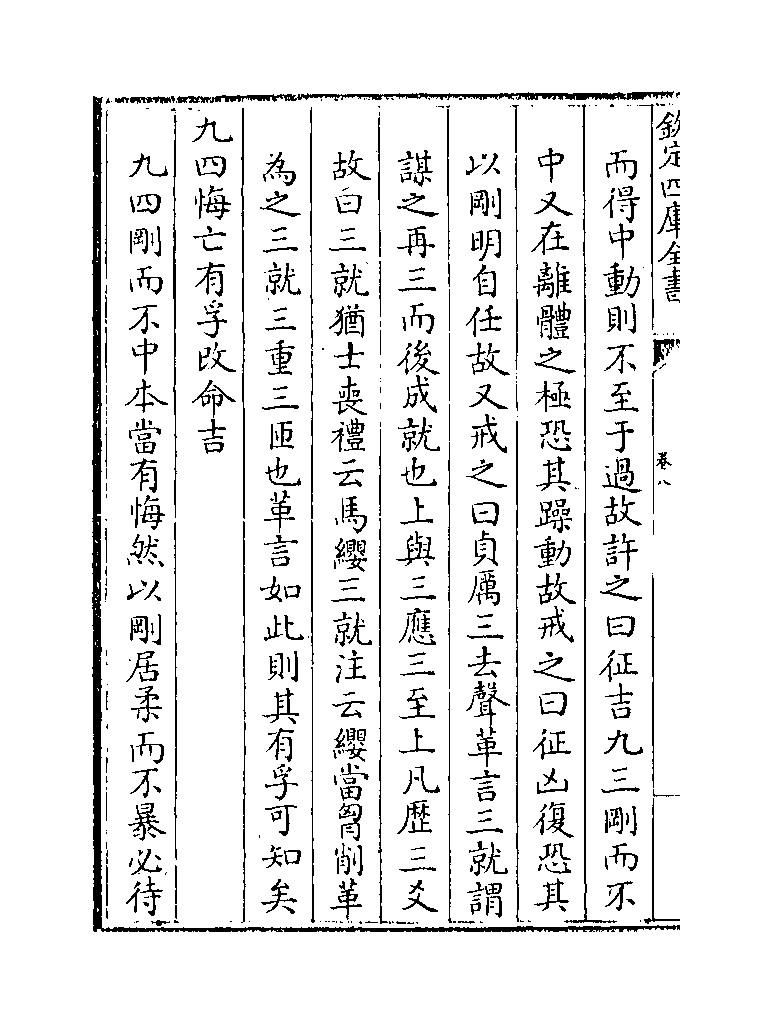 欽定四庫全書
卷八
而得中動則不至于過故許之曰征吉九三剛而不
中又在離體之極恐其躁動故戒之曰征凶復恐其
以剛明自任故又戒之曰貞厲三去聲革言三就謂
謀之再三而後成就也上與三應三至上凡歷三爻
故曰三就猶士喪禮云馬纓三就注云纓當胷削革
為之三就三重三匝也革言如此則其有孚可知矣
九四悔亡有孚改命吉
九四剛而不中本當有悔然以剛居柔而不暴必待